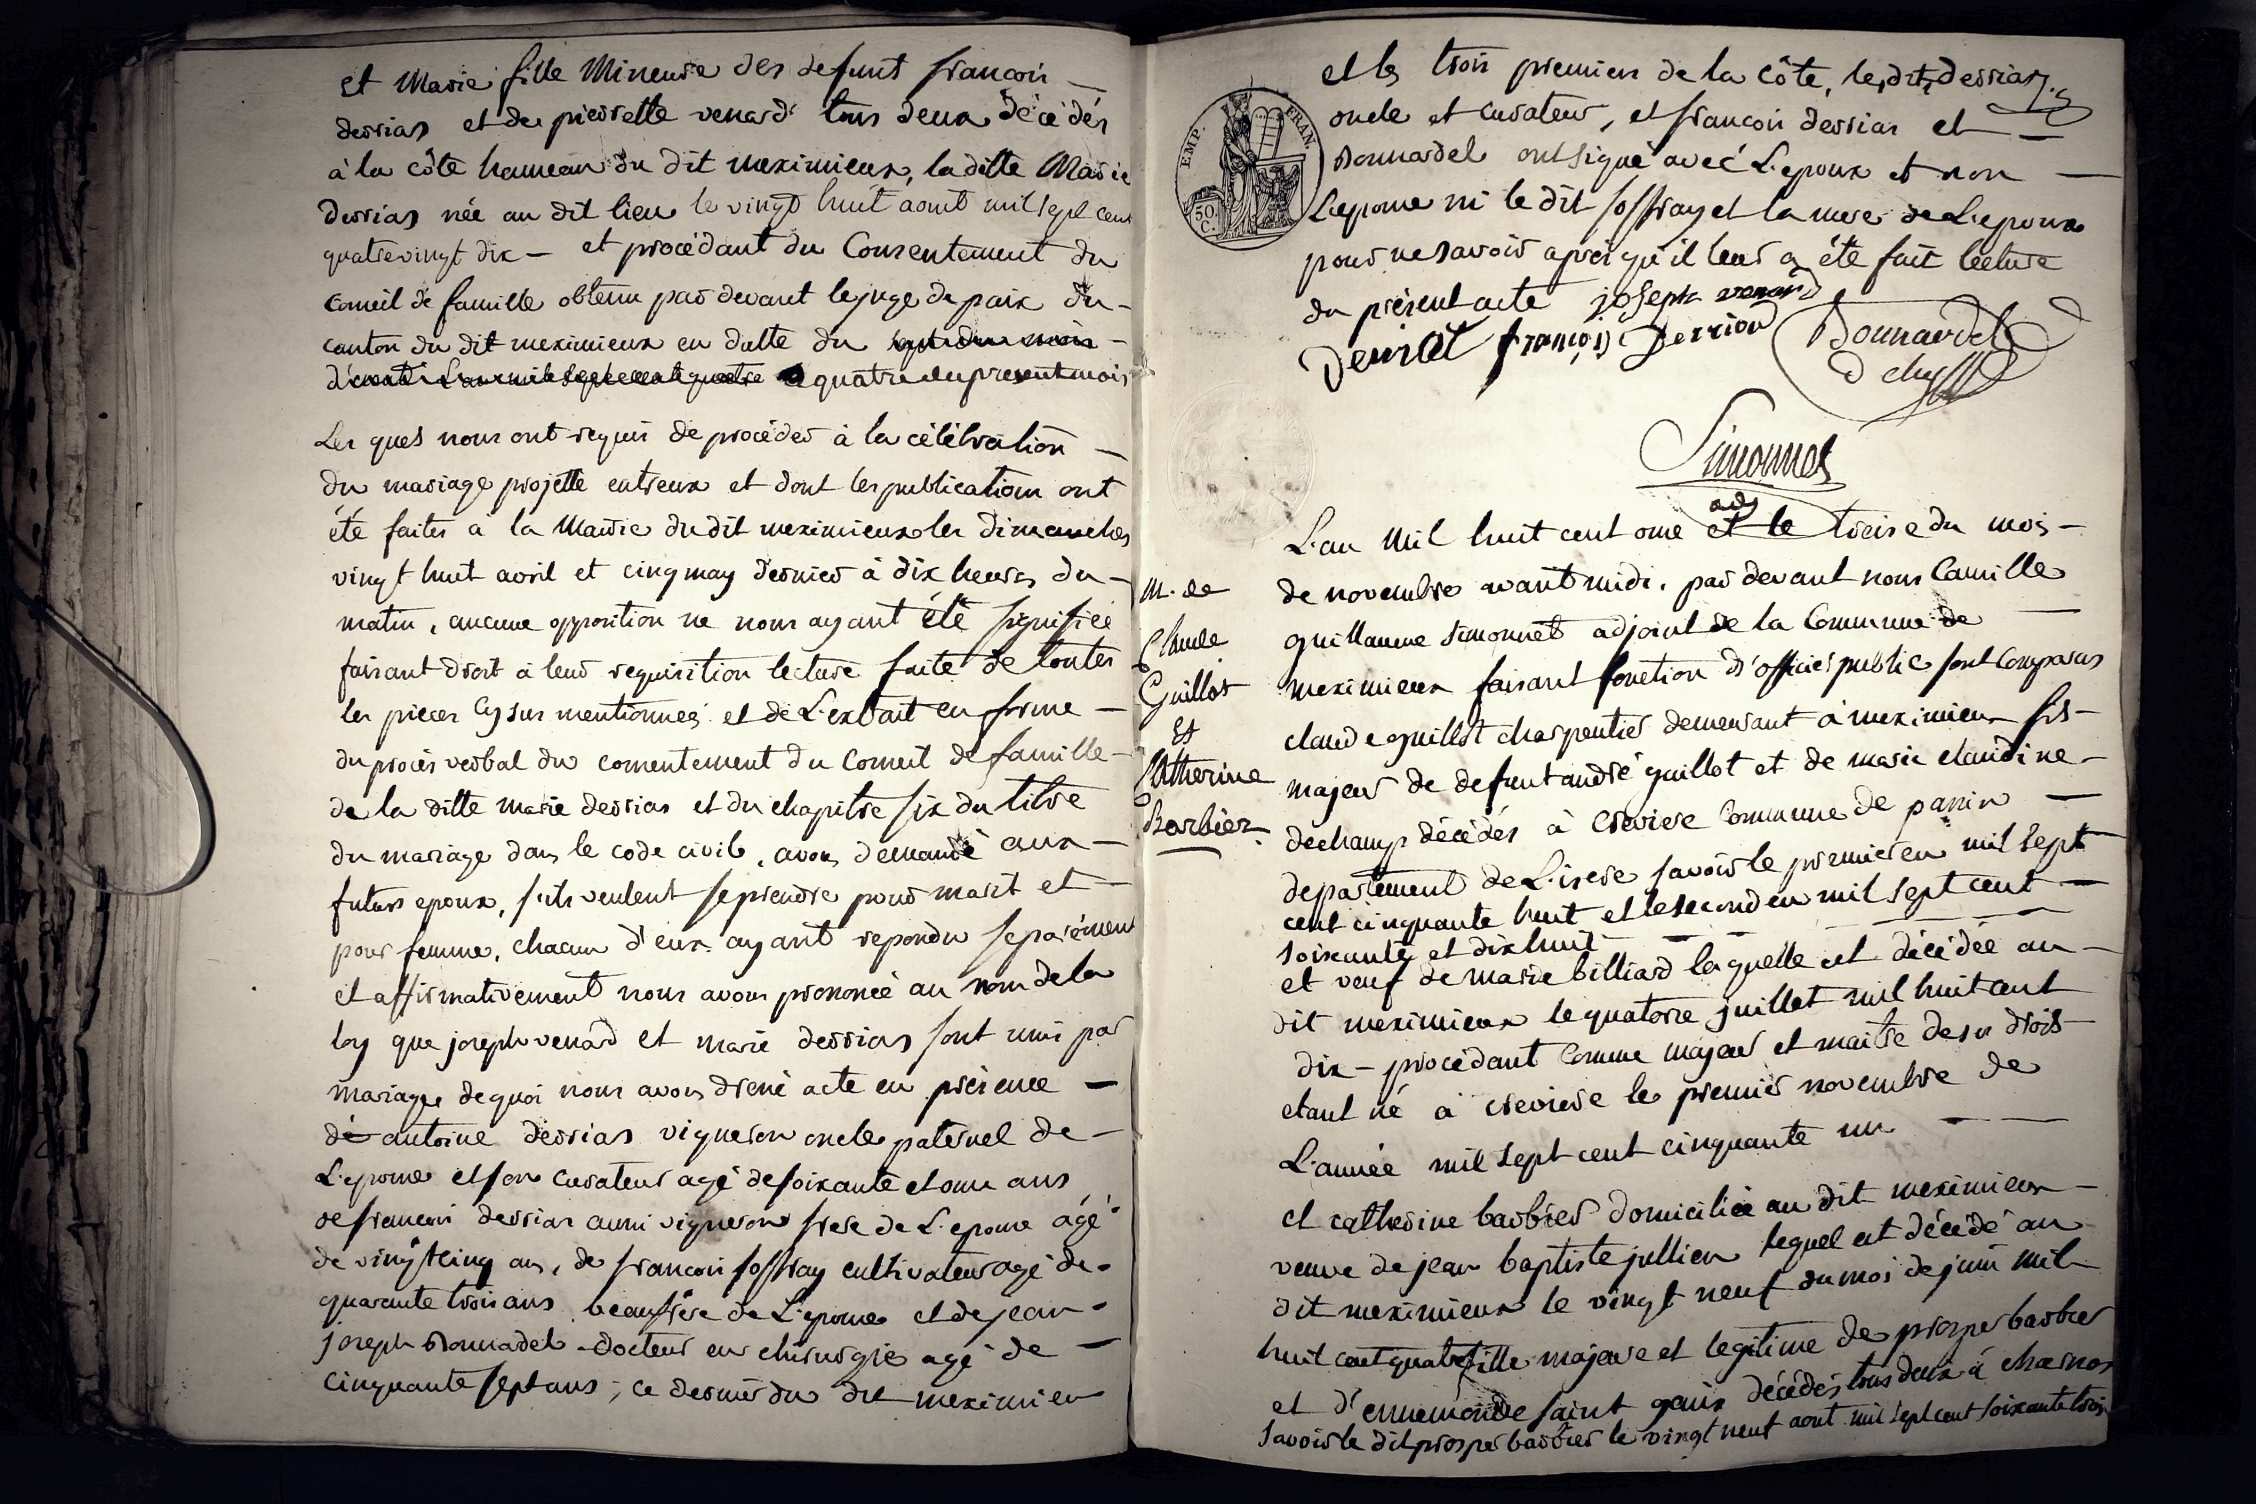 et Marie fille Mineure des defunt françois
derrias et de pierrette venard tous deux décédés
à la côte hameau du dit meximieux, la ditte Marie
derrias née au dit lieu le vingt huit aout mil sept cent
quatrevingt dix — et procédant du Consentement du
Conseil de famille obtenu par devant le juge de paix du
canton du dit meximieux en datte du
quatre du present mois
Les quels nous ont requis de procéder à la célébration
du mariage projetté entreux et dont les publications ont
été faites à la Mairie du dit meximieux les dimanches
vingt huit avril et cinq may dernier à dix heures du
matin, aucune opposition ne nous ayant été signifiée
faisant droit à leur requisition lecture faite de toutes
les pieces cy sus mentionneés et de L'extrait en forme
du procès verbal du consentement du Conseil de famille
de la ditte marie derrias et du chapitre six du titre
du mariage dans le code civil, avons demandé aux
futurs epoux, s'ils veulent se prendre pour mari et
pour femme, chacun d'eux ayant repondu separément
et affirmativement nous avons prononcé au nom de la
loy que joseph venard et marie derrias sont unis par
mariage de quoi nous avons dressé acte en présence
de antoine derrias vigneron oncle paternel de
L'epouse et son curateur agé de soixante et onze ans
de françois derrias aussi vigneron frere de L'epouse agé
de vingt cinq ans, de françois soffray cultivateur agé de
quarante trois ans beaufrère de L'epouse et de jean
joseph Bonnardel docteur en chirurgie agé de
cinquante sept ans, ce dernier du dit meximieux
et les trois premiers de la Côte, les dits derrias
oncle et curateur, et françois derrias et
Bonnardel ont signé avec L'epoux et non
L'epouse ni le dit soffray et la mere de L'epoux
pour ne savoir après qu'il leur a été fait lecture
du présent acte joseph venard
Derriat françois Derrion Bonnardel
D chir
Simonnet
adj
L'an Mil huit cent onze et le treise du mois
de novembre avant midi, par devant nous Camille
guillaume Simonnet adjoint de la Commune de
meximieux faisant fonction d'officier public sont comparus
claude guillot charpentier demeurant à meximieux fils
majeur de defunt andré guillot et de marie claudine
dechamp décédés à creviere Commune de passin
departement de L'isere savoir le premier en mil sept
cent cinquante huit et le second en mil sept cent
soixante et dix huit
et veuf de marie billiard laquelle est décédée au
dit meximieux le quatorze juillet mil huit cent
dix — procédant Comme majeur et maitre de ses droits
etant né à creviere le premier novembre de
L'année mil sept cent cinquante un
et catherine barbier domiciliée au dit meximieux
veuve de jean baptiste jullien lequel est décédé au
dit meximieux le vingt neuf du mois de juin mil
huit cent quatre fille majeure et legitime de prosper barbier
et d'ennemonde saint genix décédés tous deux à charnos
savoir le dit prosper barbier le vingt neuf aout mil sept cent soixante trois
M. de
Claude
Guillot
Et
Catherine
Barbier
EMP. FRAN.
50
C.